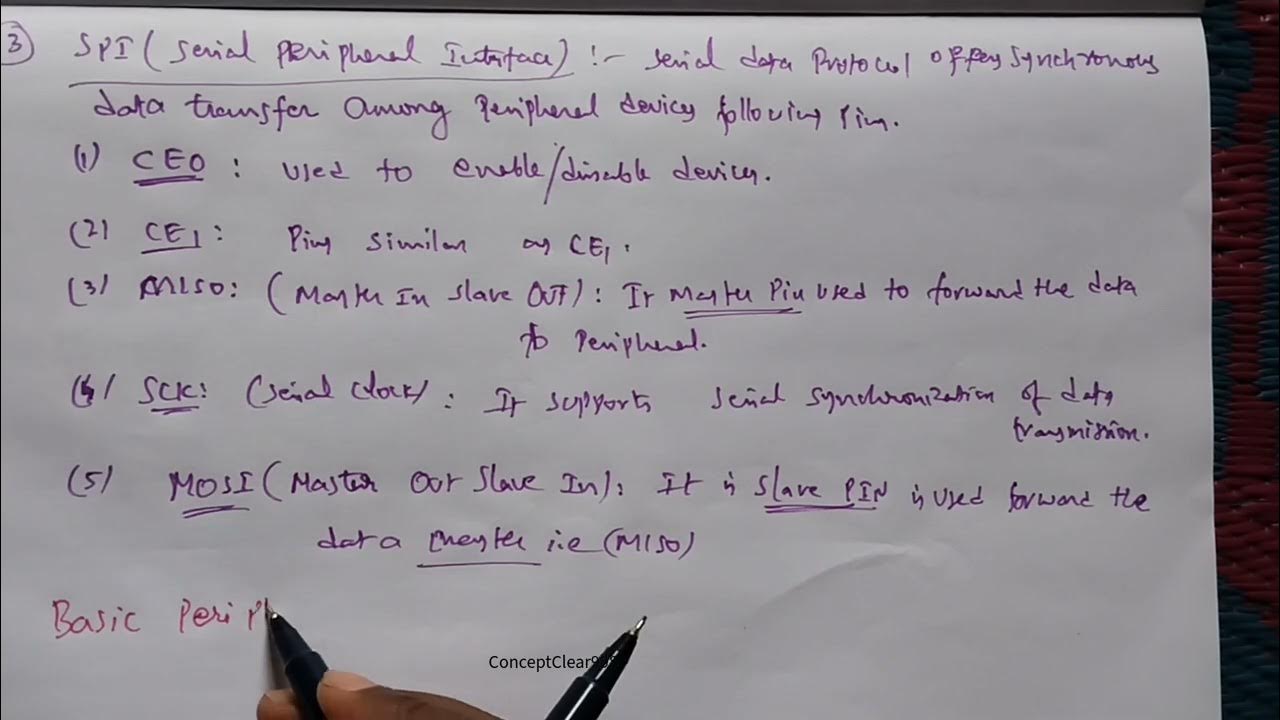 3) SPI (Serial Peripheral Interface) :- Serial data Protocol offers synchronous
data transfer among Peripheral devices following Pins.
(1) CE0 : Used to enable/disable devices.
(2) CE1 : Pins similar as CE1.
(3) MISO: (Master In Slave OUT) : It Master Pin used to forward the data
to Peripheral.
(4) SCK: (Serial Clock) : It supports serial synchronization of data
transmission.
(5) MOSI (Master Out Slave In): It is Slave PIN is used forward the
data master i.e (MISO)
Basic Periph
ConceptClear